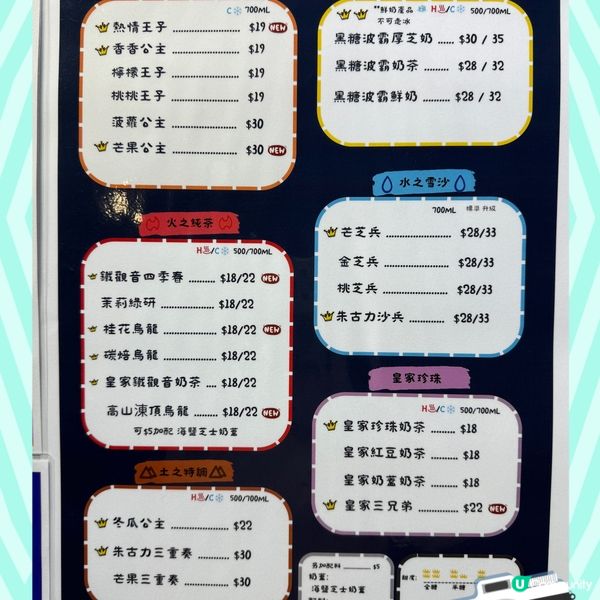 C 700ML
熱情王子 ........ $19 NEW
香香公主 ........ $19
檸檬王子 ........ $19
桃桃王子 ........ $19
菠蘿公主 ........ $30
芒果公主 ........ $30 NEW
火之純茶
H/C 500/700ML
鐵觀音四季春 ........ $18/22 NEW
茉莉綠研 ........ $18/22
桂花烏龍 ........ $18/22 NEW
碳焙烏龍 ........ $18/22
皇家鐵觀音奶茶 ... $18/22
高山凍頂烏龍 ........ $18/22 NEW
可$5加配 海鹽芝士奶蓋
土之特調
H/C 500/700ML
冬瓜公主 ........ $22
朱古力三重奏 ........ $30
芒果三重奏 ........ $30
"鮮奶產品 H/C 500/700ML
不可走冰
黑糖波霸厚芝奶 ..... $30 / 35
黑糖波霸奶茶 ........ $28 / 32
黑糖波霸鮮奶 ........ $28 / 32
水之雪沙
700ML 標準 升級
芒芝兵 ........ $28/33
金芝兵 ........ $28/33
桃芝兵 ........ $28/33
朱古力沙兵 ........ $28/33
皇家珍珠
H/C 500/700ML
皇家珍珠奶茶 ........ $18
皇家紅豆奶茶 ........ $18
皇家奶蓋奶茶 ........ $18
皇家三兄弟 ........ $22 NEW
另加配料 ........ $5
奶蓋:
海鹽芝士奶蓋
甜度:
全糖 半糖
U